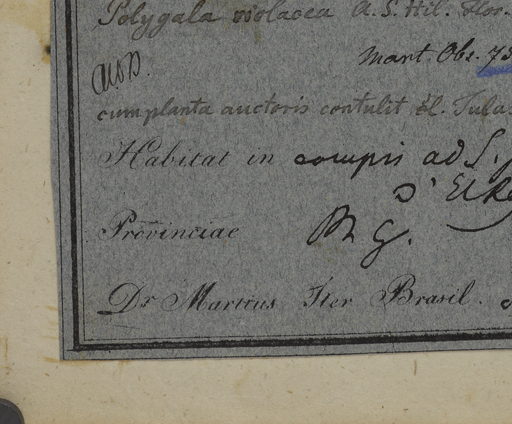 Polygala violacea A. S. Hil. Flor.
Mart. Obs. 75
cum planta auctoris contulit cl. Tulas
Habitat in campis ad S.
D'El Re
Provinciae M G.
Dr Martius Iter Brasil.